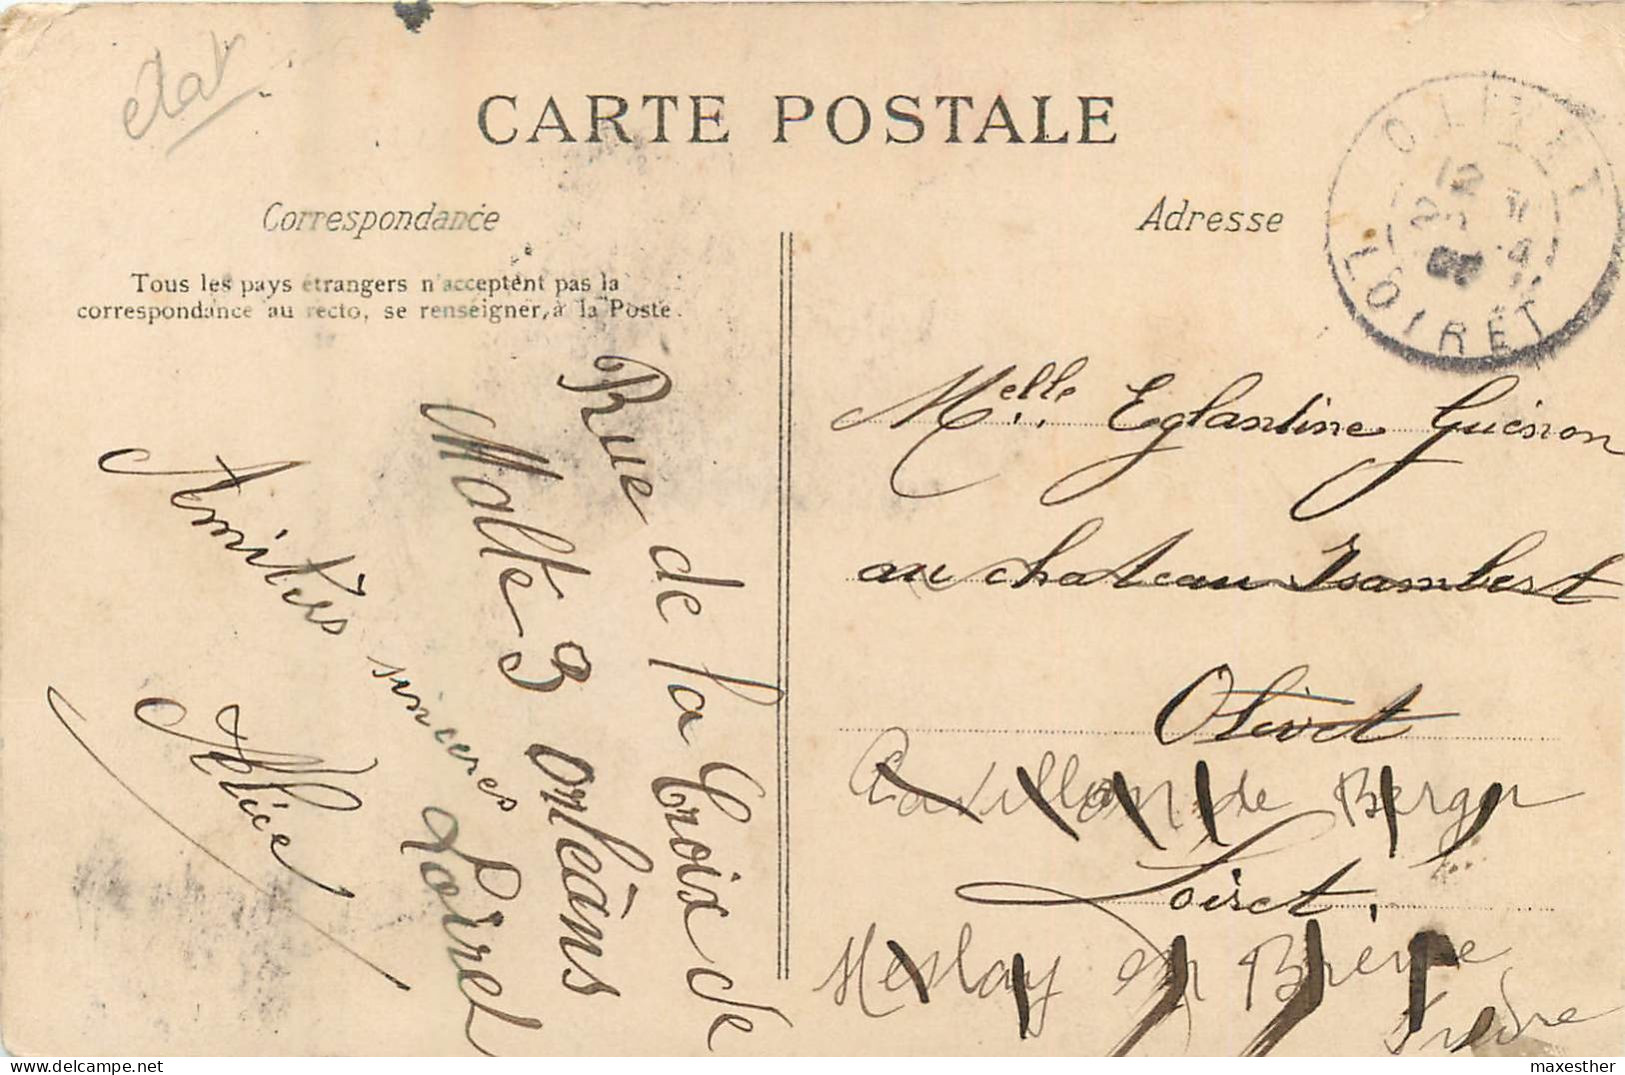 état
CARTE POSTALE
Correspondance
Adresse
Tous les pays étrangers n'acceptent pas la
correspondance au recto, se renseigner, à la Poste.
OLIVET
12
LOIRET
Rue de la Croix de
Malte 3 Orléans
Loiret
Amitiés sincères
Alice
Melle Eglantine Guénon
au chateau Isambert
Olivet
Pavillon de
Loiret.
Meslay
maxesther